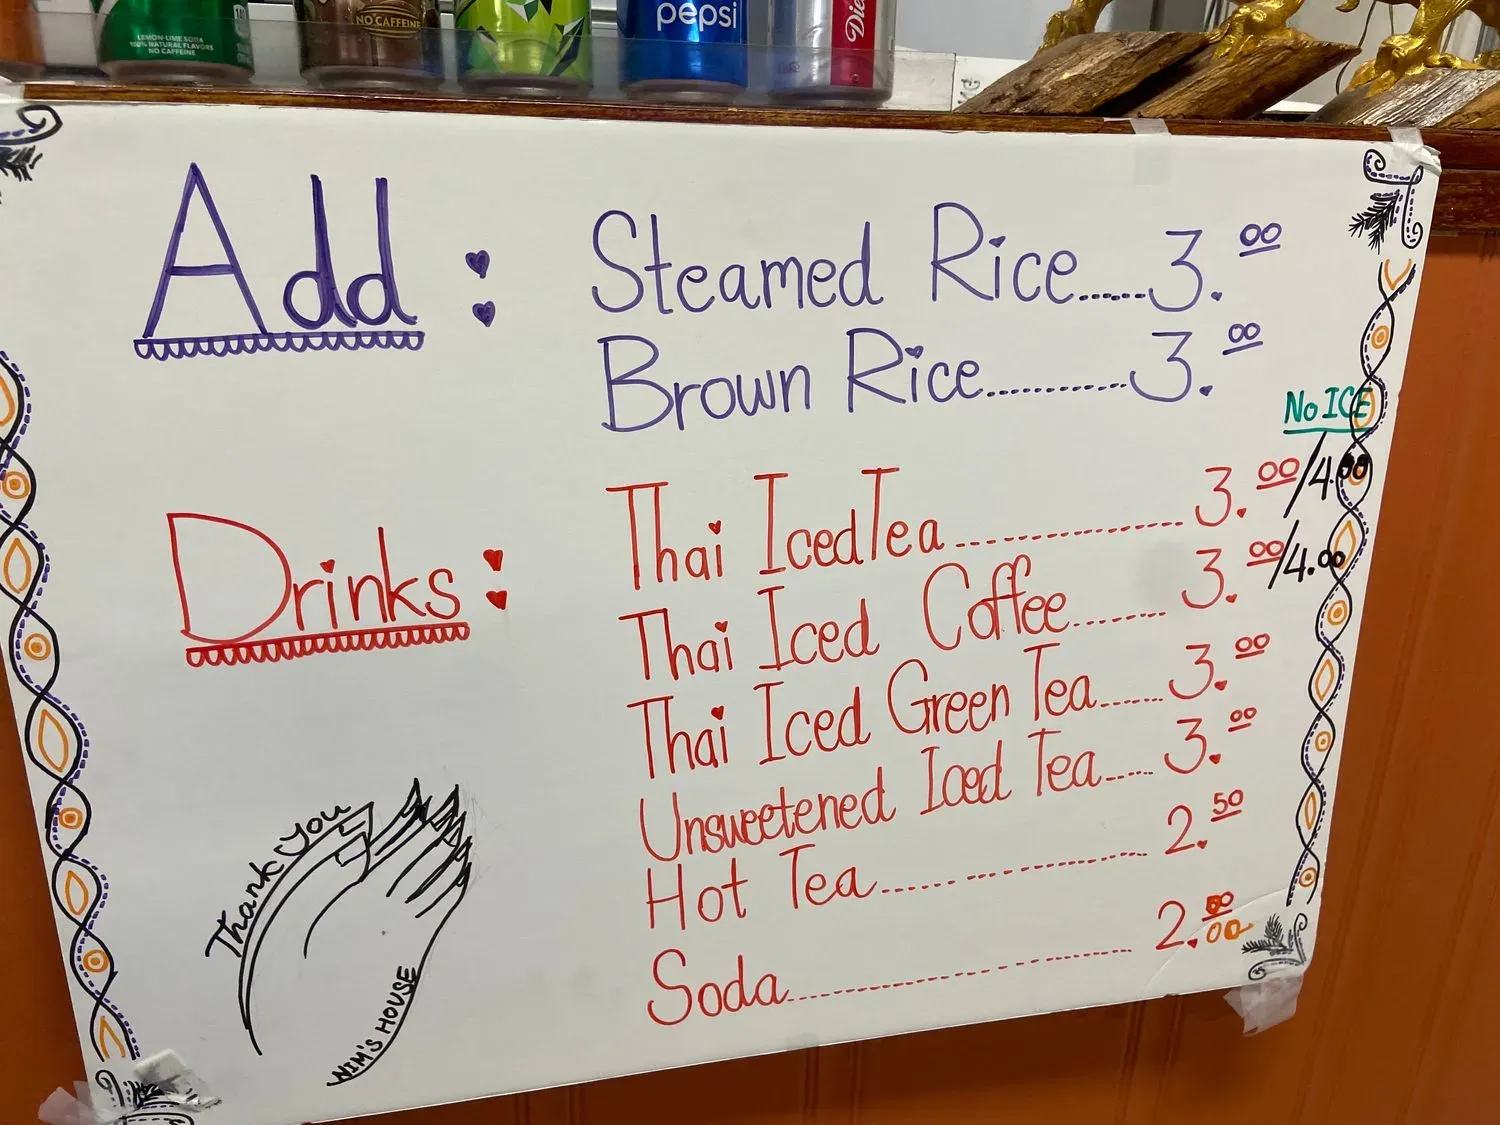 LEMON-LIME SODA
100% NATURAL FLAVORS
NO CAFFEINE
NO CAFFEINE
pepsi
Die
Add :
Steamed Rice......3.00
Brown Rice............3.00
No ICE
Drinks :
Thai Iced Tea ................ 3.00/4.00
Thai Iced Coffee........ 3.00/4.00
Thai Iced Green Tea...... 3.00
Unsweetened Iced Tea..... 3.00
Hot Tea...... ............ 2.50
Soda.......................... 2.00
Thank you
NIM'S HOUSE